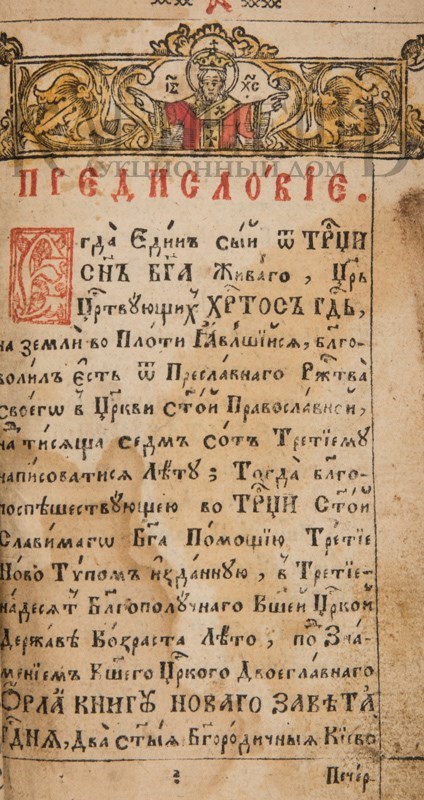 І҃С Х҃С
ПРЕДИСЛО́ВІЕ.
Єгда̀ Єди́нъ сы́й ѿ ТР҃ЦИ
СН҃Ъ БГ҃А Жива́гѡ, Цр҃ь
Цр҃твующихъ ХРТ҃ОСЪ ГД҃Ь,
на землѝ во Пло́ти ꙖВЛШІ́ЙСЯ, бл҃го-
воли́лъ є́сть ѿ Пресла́внагѡ Рж҃тва̀
своегѡ̀ в̾ Цр҃кви ст҃о́й Правосла́вней,
на ти́сяща се́дмъ со́тъ Тре́тїему
написоватися Лѣ́ту; Тогда̀ бл҃го-
поспѣшеству́ющею во ТР҃ЦИ Ст҃о́й
Сла́вимагѡ Бг҃а По́мощїю Тре́тїе
Но́во Ту́помъ и́зданную, в̾ Тре́тїе-
на́десят̾ Бл҃гополу́чнагѡ В҃шей Цр҃кой
Держа́вѣ Во́зраста Лѣ́то; под̾ Зна́-
менїемъ В҃шегѡ Цр҃кого Двоегла́внагѡ
ОРЛА̀ КНИ́ГУ НО́ВАГѠ ЗАВѢ́ТА
ГД҃НЯ, Два̀ ст҃ы́я Бг҃оро́дичныя Кі́ево
Пече́р